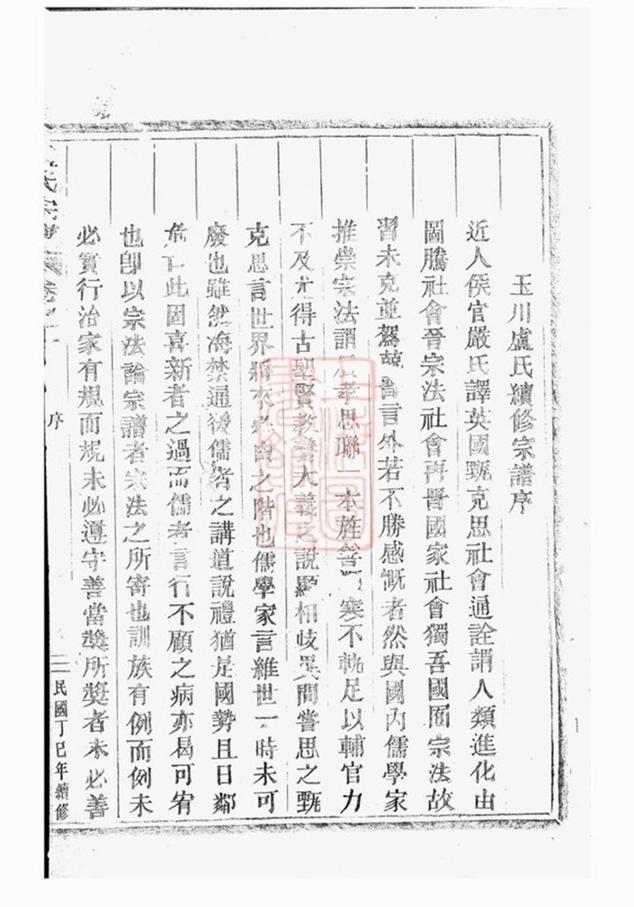 玉川盧氏續修宗譜序
近人侯官嚴氏譯英國甄克思社會通詮謂人類進化由
圖騰社會晉宗法社會再晉國家社會獨吾國囿宗法故
習未克並駕 言外若不勝感慨者然與國內儒學家
推崇宗法謂 孝思聯一本旌善 不軌足以輔官力
不及 得古聖賢教 大義之說顯相歧異間嘗思之甄
克思言世界 之階也儒學家言維世一時未可
廢也雖然海禁通後儒者之講道說禮猶是國勢且日鄰
危亡此固喜新者之過而儒者言行不顧之病亦曷可宥
也卽以宗法論宗譜者宗法之所寄也訓族有例而例未
必實行治家有規而規未必遵守善當獎所獎者未必善
氏宗譜 卷之
序
民國丁巳年續修